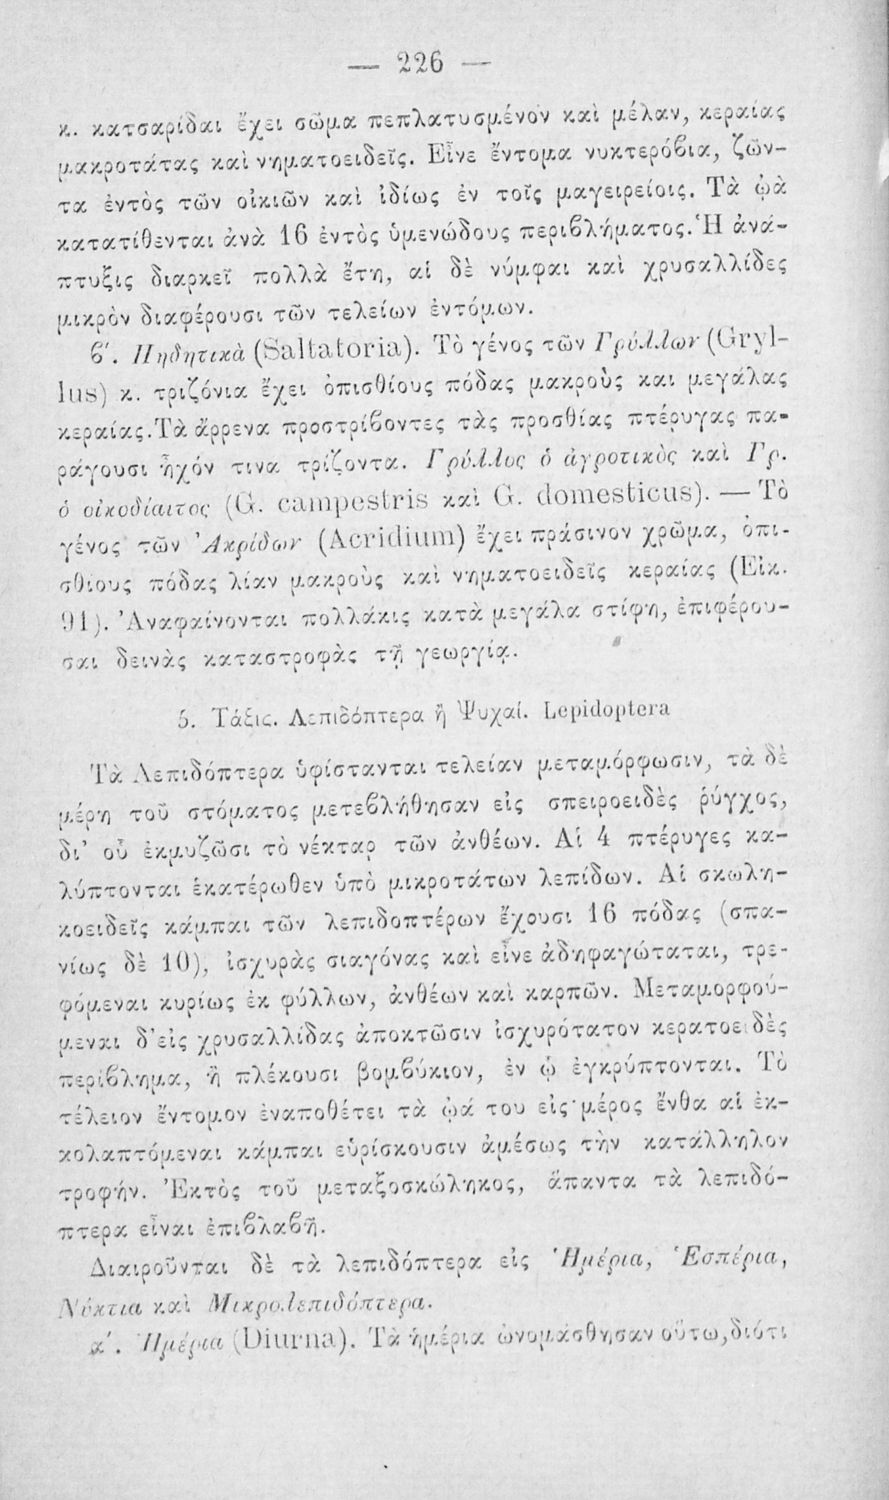 — 226 —
κ. κατσαρίδαι ἔχει σῶμα πεπλατυσμένον καὶ μέλαν, κεραίας
μακροτάτας καὶ νηματοειδεῖς. Εἶνε ἔντομα νυκτερόβια, ζῶν-
τα ἐντὸς τῶν οἰκιῶν καὶ ἰδίως ἐν τοῖς μαγειρείοις. Τὰ ᾠὰ
κατατίθενται ἀνὰ 16 ἐντὸς ὑμενώδους περιβλήματος. Ἡ ἀνά-
πτυξις διαρκεῖ πολλὰ ἔτη, αἱ δὲ νύμφαι καὶ χρυσαλλίδες
μικρὸν διαφέρουσι τῶν τελείων ἐντόμων.
β΄. Πηδητικὰ (Saltatoria). Τὸ γένος τῶν Γρύλλων (Gryl-
lus) κ. τριζόνια ἔχει ὀπισθίους πόδας μακροὺς και μεγάλας
κεραίας. Τὰ ἄρρενα προστρίβοντες τὰς προσθίας πτέρυγας πα-
ράγουσι ἦχόν τινα τρίζοντα. Γρύλλος ὁ ἀγροτικὸς καὶ Γρ.
ὁ οἰκοδίαιτος (G. campestris καὶ G. domesticus). — Τὸ
γένος τῶν Ἀκρίδων (Acridium) ἔχει πράσινον χρῶμα, ὀπι-
σθίους πόδας λίαν μακροὺς καὶ νηματοειδεῖς κεραίας (Εἰκ.
91). Ἀναφαίνονται πολλάκις κατὰ μεγάλα στίφη, ἐπιφέρου-
σαι δεινὰς καταστροφὰς τῇ γεωργίᾳ.
5. Τάξις. Λεπιδόπτερα ἢ Ψυχαί. Lepidoptera
Τὰ Λεπιδόπτερα ὑφίστανται τελείαν μεταμόρφωσιν, τὰ δὲ
μέρη τοῦ στόματος μετεβλήθησαν εἰς σπειροειδὲς ῥύγχος,
δι’ οὗ ἐκμυζῶσι τὸ νέκταρ τῶν ἀνθέων. Αἱ 4 πτέρυγες κα-
λύπτονται ἑκατέρωθεν ὑπὸ μικροτάτων λεπίδων. Αἱ σκωλη-
κοειδεῖς κάμπαι τῶν λεπιδοπτέρων ἔχουσι 16 πόδας (σπα-
νίως δὲ 10), ἰσχυρὰς σιαγόνας καὶ εἶνε ἀδηφαγώταται, τρε-
φόμεναι κυρίως ἐκ φύλλων, ἀνθέων καὶ καρπῶν. Μεταμορφού-
μεναι δ’εἰς χρυσαλλίδας ἀποκτῶσιν ἰσχυρότατον κερατοειδὲς
περίβλημα, ἢ πλέκουσι βομβύκιον, ἐν ᾧ ἐγκρύπτονται. Τὸ
τέλειον ἔντομον ἐναποθέτει τὰ ᾠά του εἰς μέρος ἔνθα αἱ ἐκ-
κολαπτόμεναι κάμπαι εὑρίσκουσιν ἀμέσως τὴν κατάλληλον
τροφήν. Ἐκτὸς τοῦ μεταξοσκώληκος, ἅπαντα τὰ λεπιδό-
πτερα εἶναι ἐπιβλαβῆ.
Διαιροῦνται δὲ τὰ λεπιδόπτερα εἰς Ἡμέρια, Ἑσπέρια,
Νύκτια καὶ Μικρολεπιδόπτερα.
α΄. Ἡμέρια (Diurna). Τὰ ἡμέρια ὠνομάσθησαν οὕτω, διότι